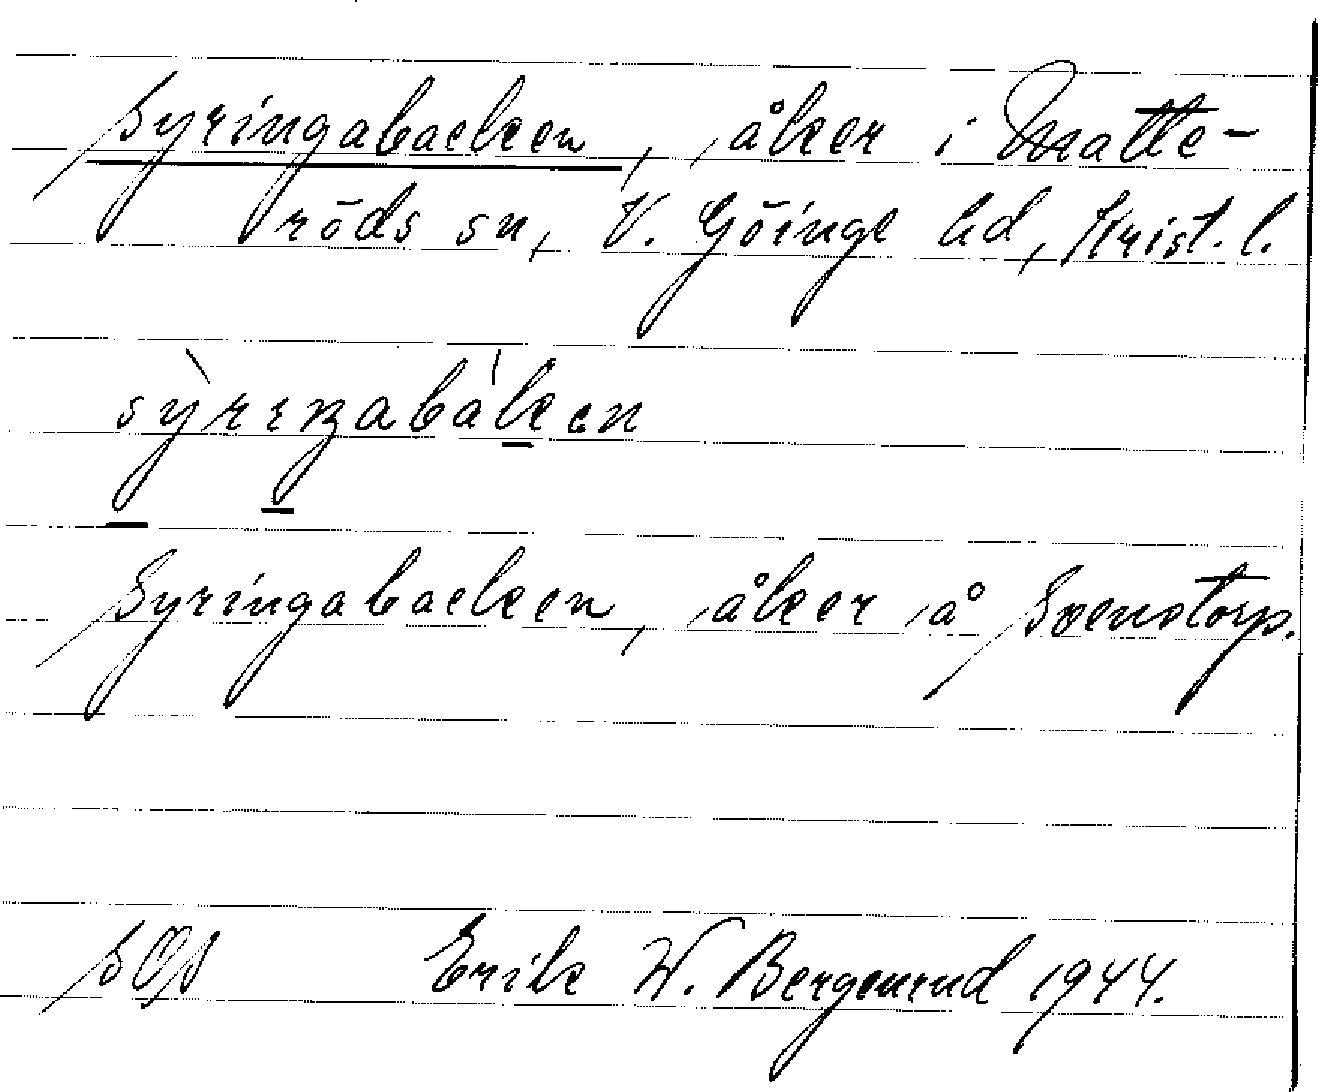 Syringabacken, åker i Matte-
röds sn, V. Göinge hd, Krist. l.
sỳrıŋabàken
Syringabacken, åker å Svenstorp.
Erik W. Bergenrud 1944.